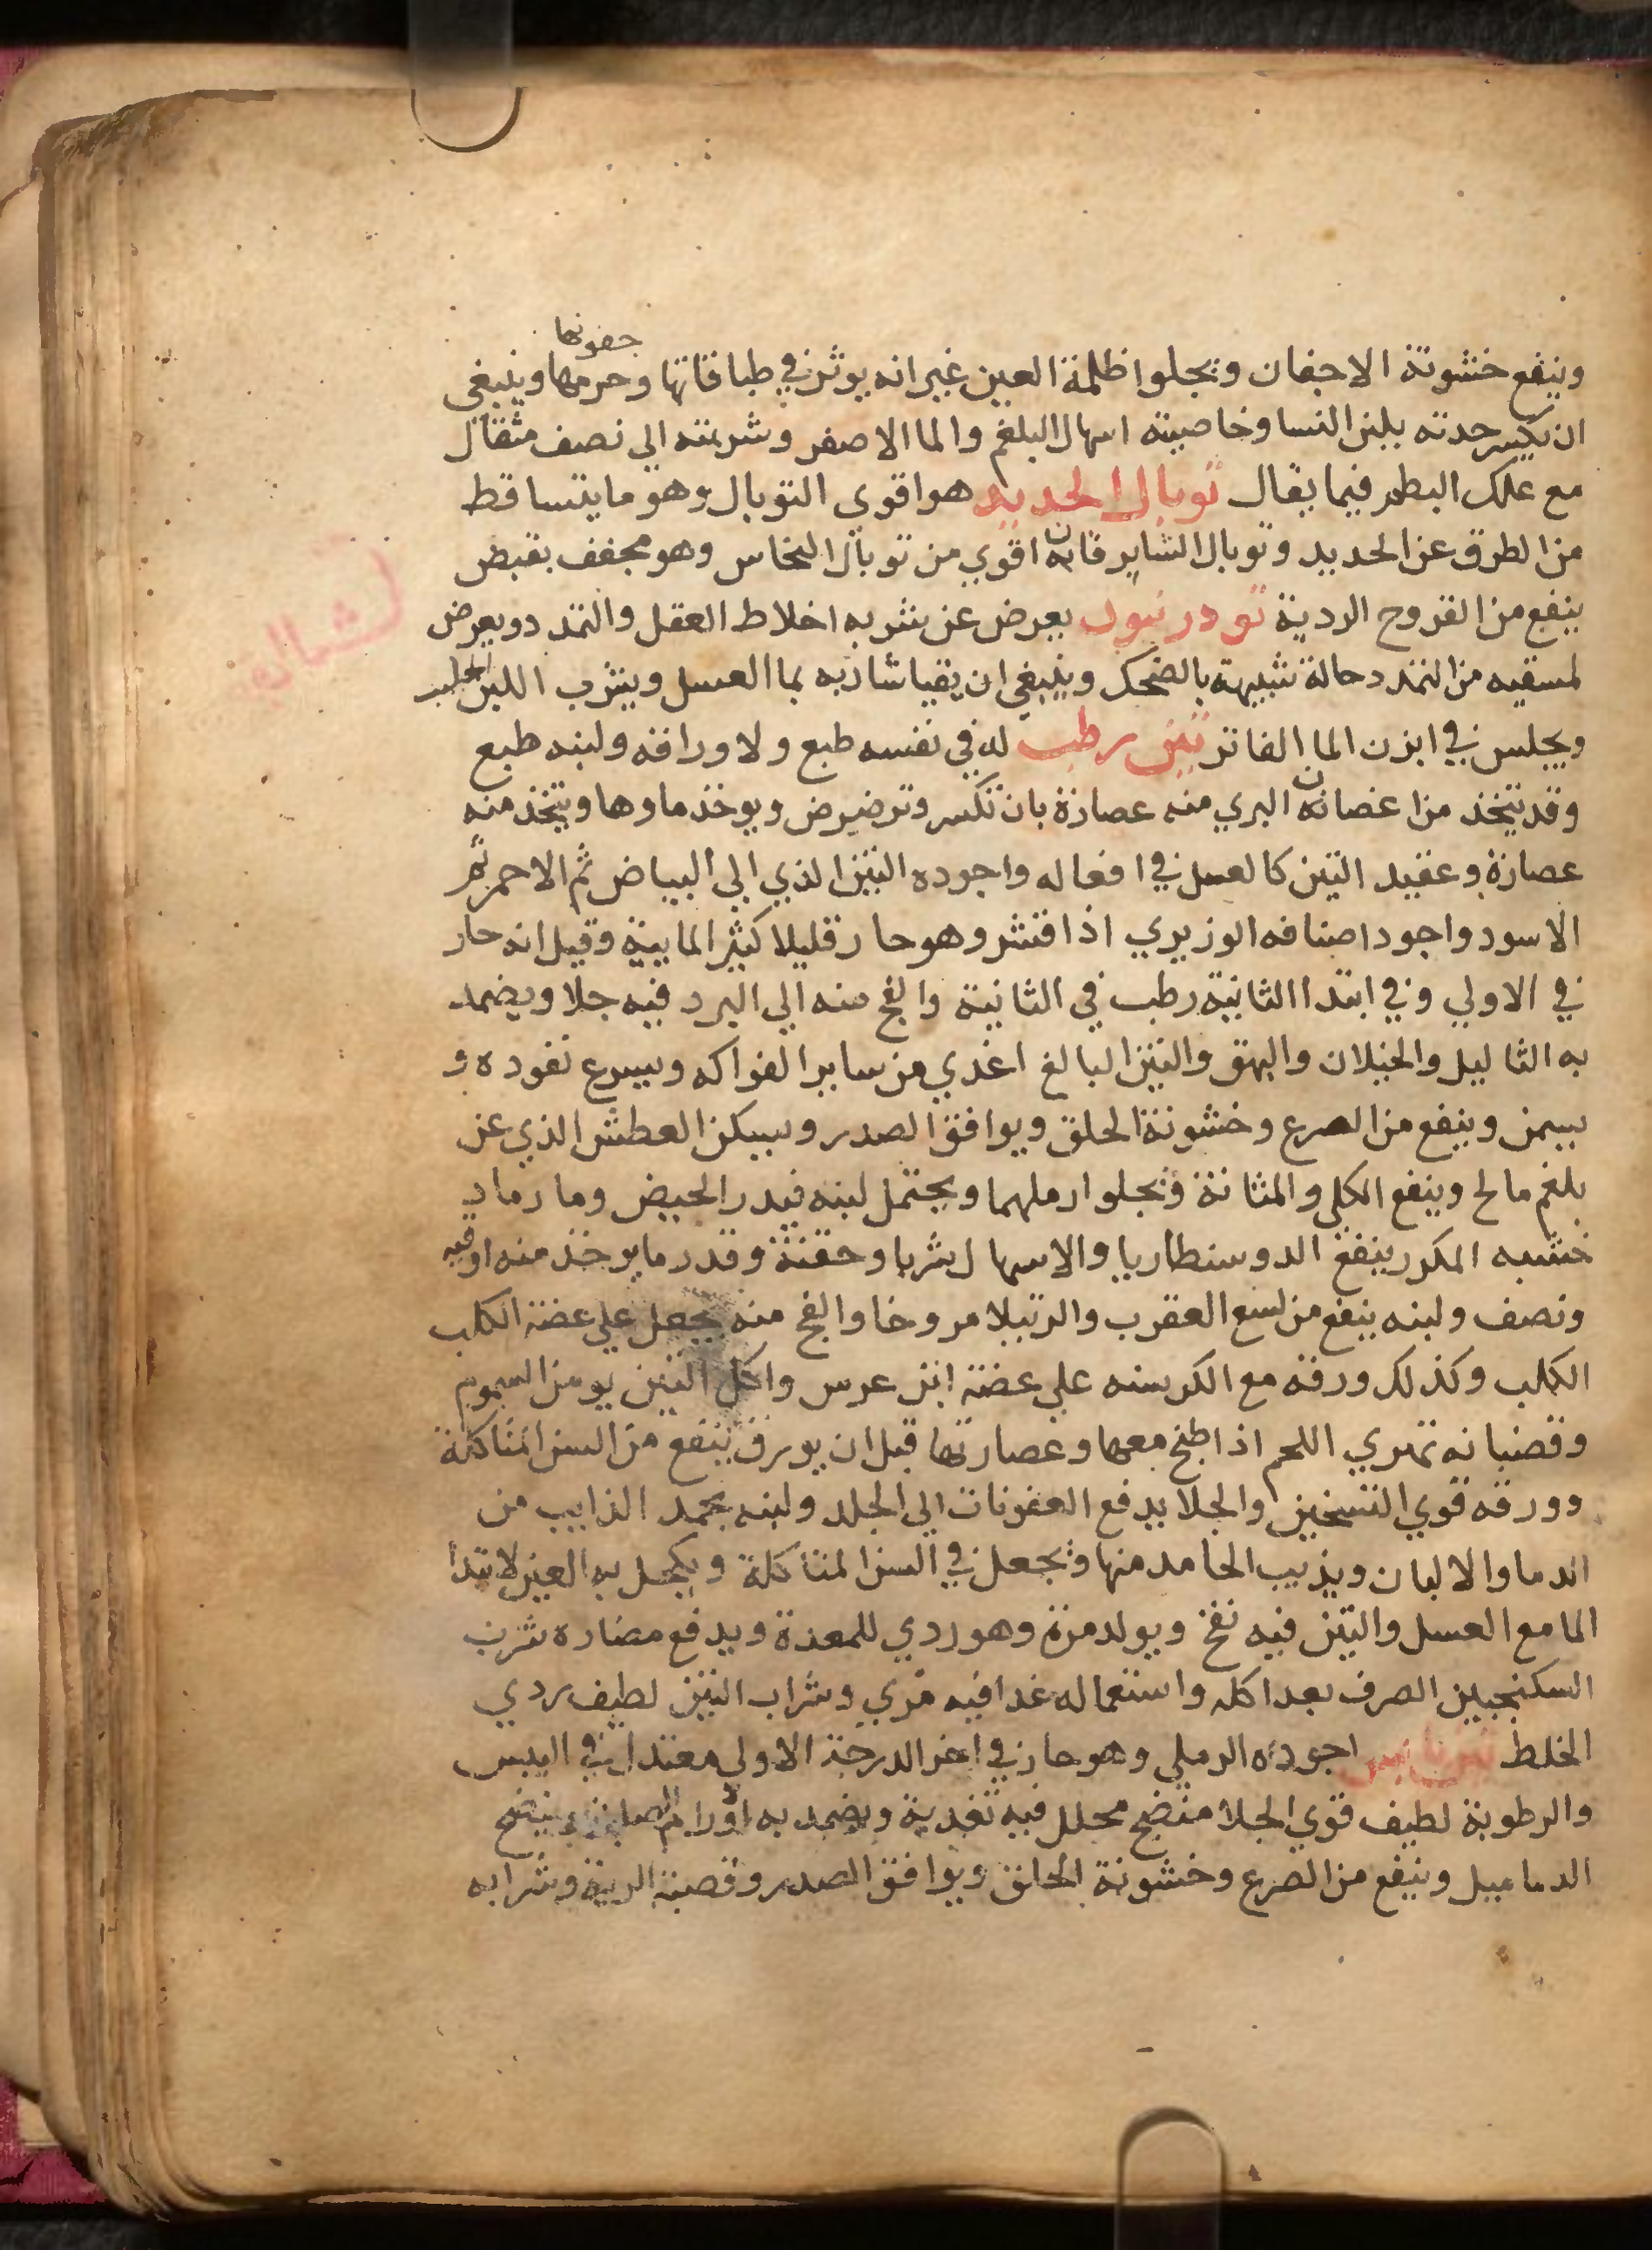 جفونها
وينفع خشونة الاجفان ويجلوا ظلمة العين غير انه يوثر في طباقاتها وحرمها وينبغي
ان تكسر حدته بلبن النسا وخاصيته اسهال البلغم والما الاصفر وشربته الي نصف مثقال
مع علك البطم فيما يقال توبال الحديد هو اقوي التوبال وهو ما يتساقط
من الطرق عن الحديد وتوبال الشابرقان اقوي من توبال النحاس وهو مجفف بقبض
ينفع من القروح الردية تودرنيون يعرض عن شربه اخلاط العقل والتمدد ويعرض
لمسقيه من التمدد حالة شبيهة بالضحك وينبغي ان يقيا شاربه بما العسل ويشرب اللبن الحليب
ويجلس في ابزن الما الفاتر تين رطب له في نفسه طبع ولاوراقه ولبنه طبع
وقد يتخذ من اغصانه البري منه عصارة بان تكسر وترضرض ويوخذ ماوها ويتخذ منه
عصارة وعقيد التين كالعسل في افعاله واجوده التين الذي الي البياض ثم الاحمر ثم
الاسود واجود اصنافه الوزيري اذا قشر وهو حار قليلا كثير المايية وقيل انه حار
في الاولي وفي ابتدا الثانية رطب في الثانية والفج منه الي البرد فيه جلا ويضمد
به الثاليل والخيلان والبهق والتين البالغ اغذي من ساير الفواكه ويسرع نفوده و
يسمن وينفع من الصرع وخشونة الحلق ويوافق الصدر ويسكن العطش الذي عن
بلغم مالح وينفع الكلي والمثانة ويجلوا رملهما ويحتمل لبنه فيدر الحيض وما رماد
خشبه المكرر ينفع الدوسنطاريا والاسهال شربا وحقنة وقدر ما يوخذ منه اوقيه
ونصف ولبنه ينفع من لسع العقرب والرتيلا مروخا والفج منه يجعل علي عضة الكلب
الكلب وكذلك ورقه مع الكرسنه علي عضة ابن عرس واكل التين يومن السموم
وقضبانه تهري اللحم اذا طبخ معها وعصارتها قبل ان يورق ينفع من السن المتاكلة
وورقه قوي التسخين والجلا يدفع العفونات الي الجلد ولبنه يجمد الذايب من
الدما والالبان ويذيب الجامد منها ويجعل في السن المتاكلة ويكحل به العين لابتدا
الما مع العسل والتين فيه نفخ ويولد مرة وهو ردي للمعدة ويدفع مضاره شرب
السكنجبين الصرف بعد اكله واستعماله غدا فيه مري وشراب التين لطيف ردي
الخلط تين يابس اجوده الرملي وهو حار في اخر الدرجة الاولي معتدل في اليبس
والرطوبة لطيف قوي الجلا منضج محلل فيه تغدية ويضمد به اورام الصلبة ينضج
الدماميل وينفع من الصرع وخشونة الحلق ويوافق الصدر وقصبة الرية وشرابه